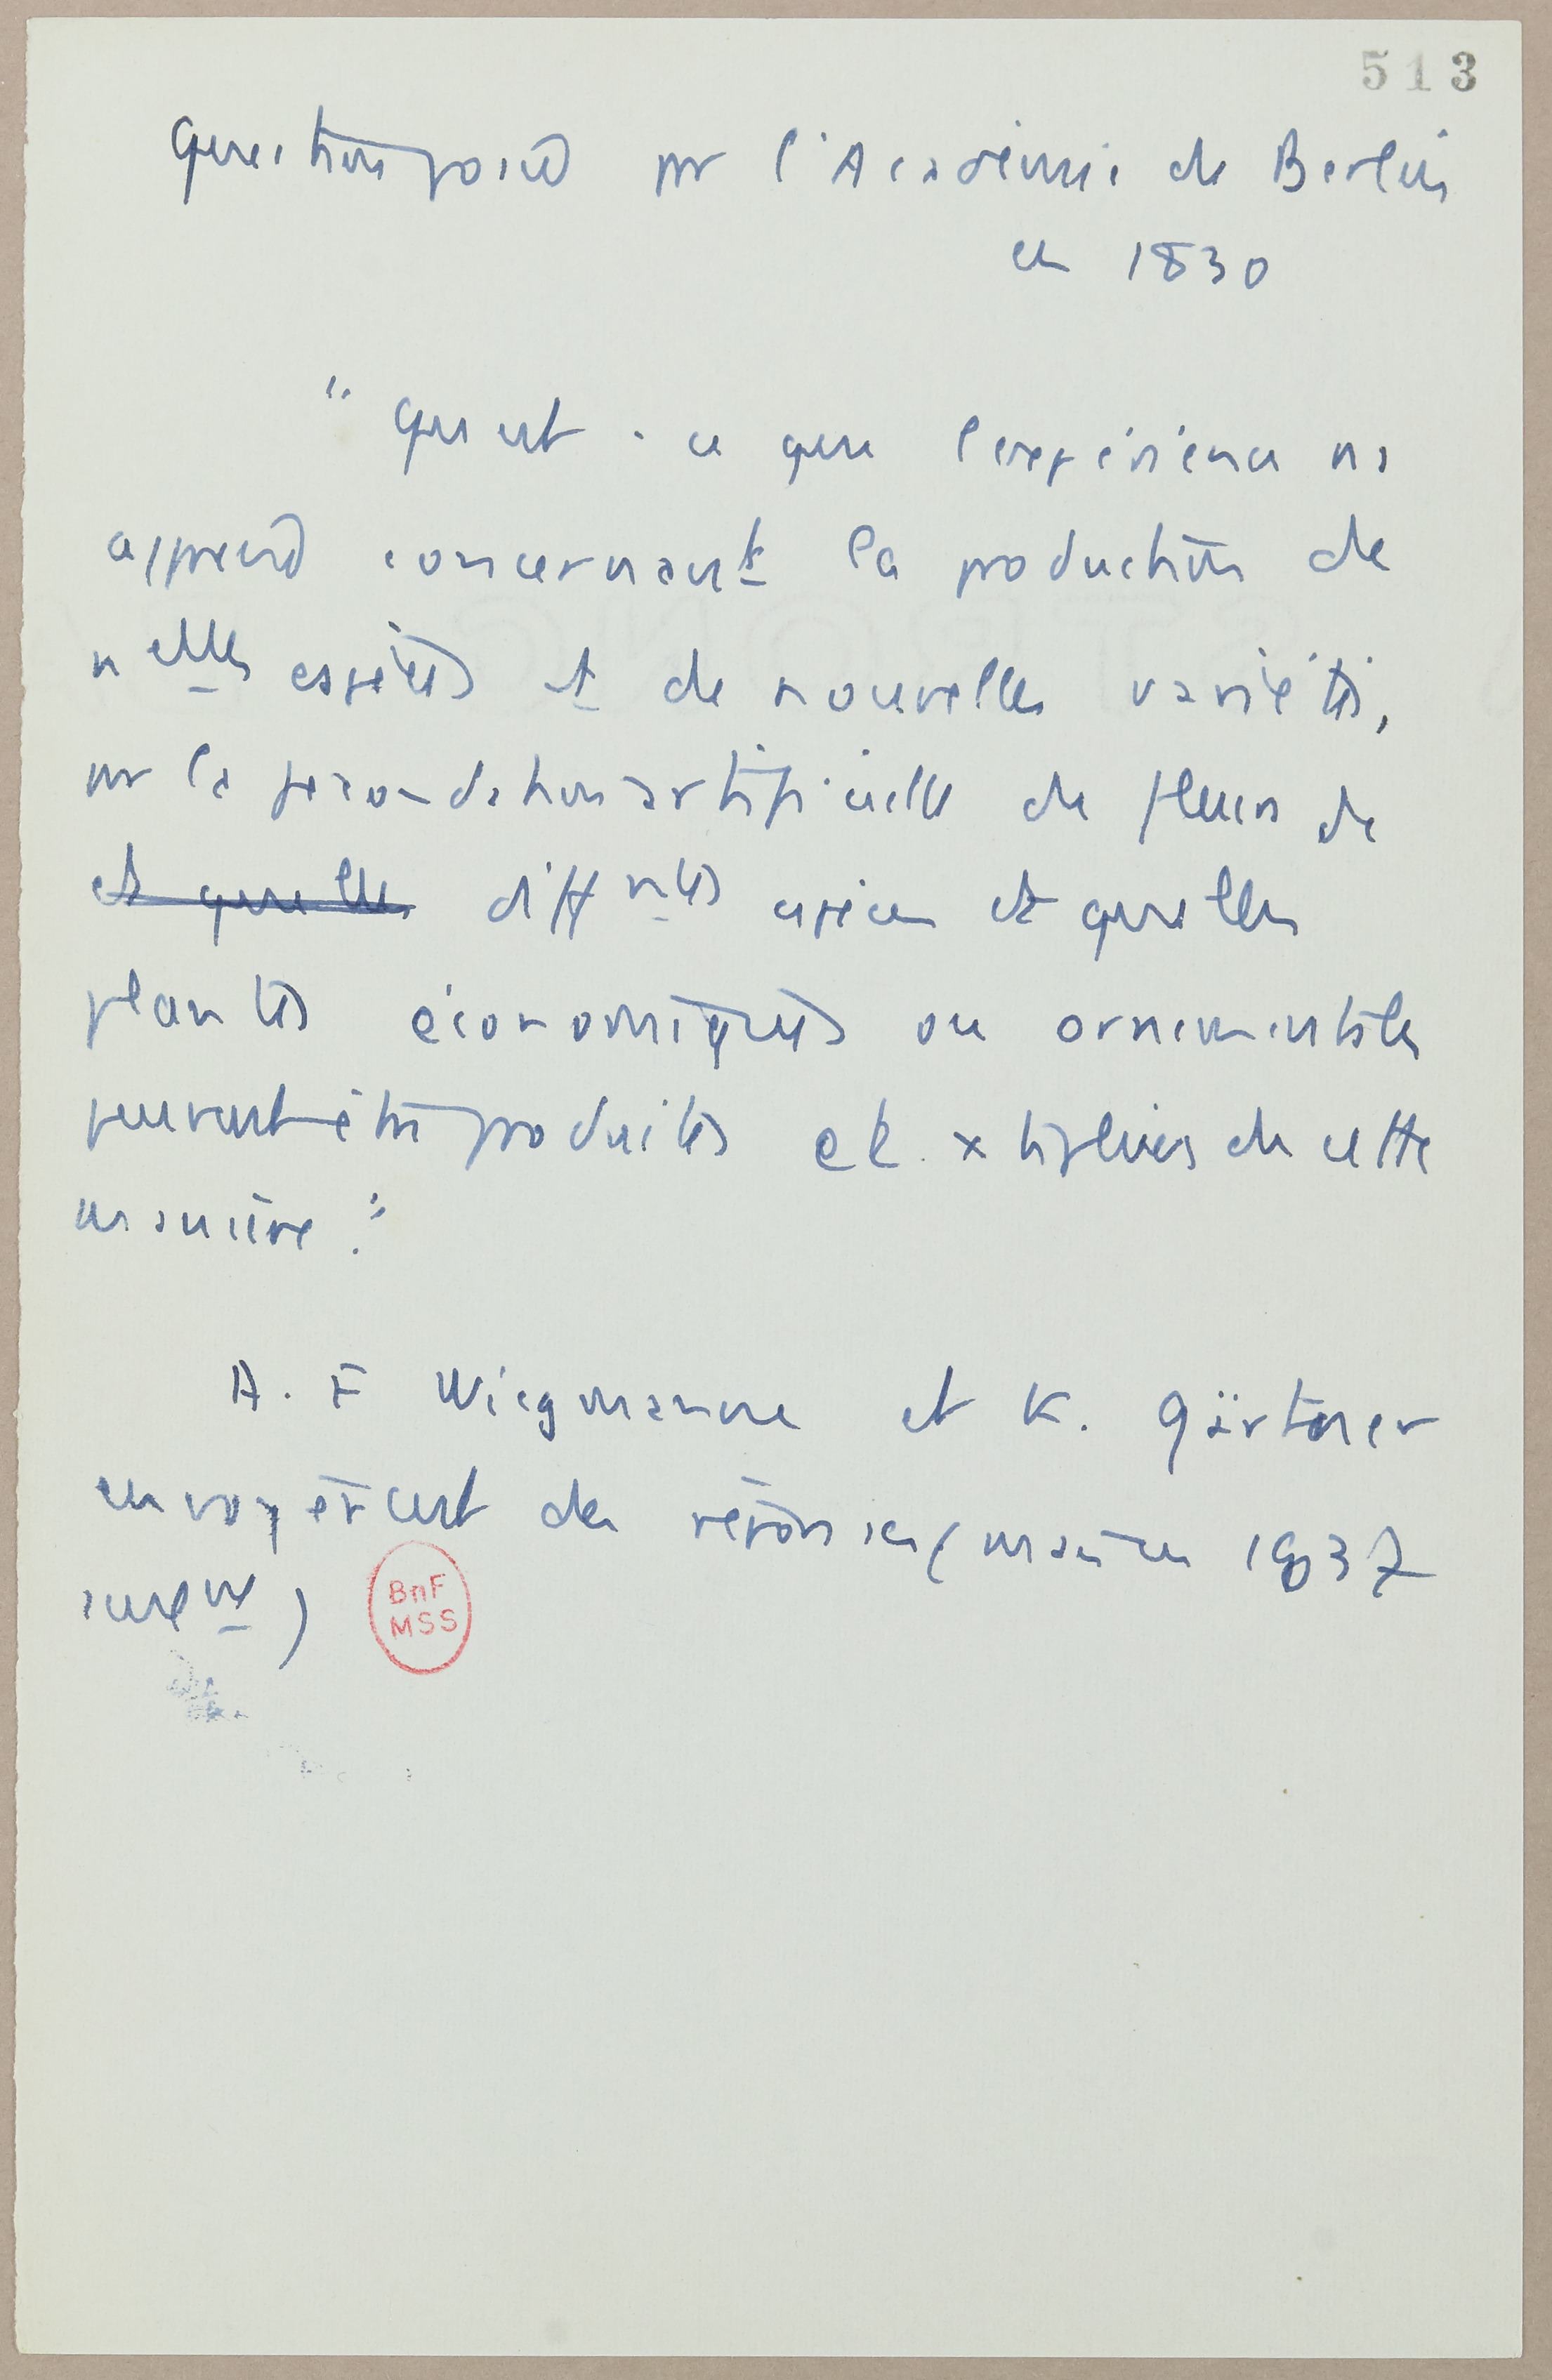 513
Question posée pr l'Académie de Berlin
en 1830
" Qu'est-ce que l'expérience ns
apprend concernant la production de
nelles espèces et de nouvelles variétés,
pr la fécondation artificielle de fleurs de
et quelles diffntes espèces et quelles
plantes économiques ou ornementales
peuvent être produites et xtipliées de cette
manière."
A. F Wiegmanne et K. Gärtner
envoyèrent des réponses (mais en 1837
seulemt)
BnF
MSS